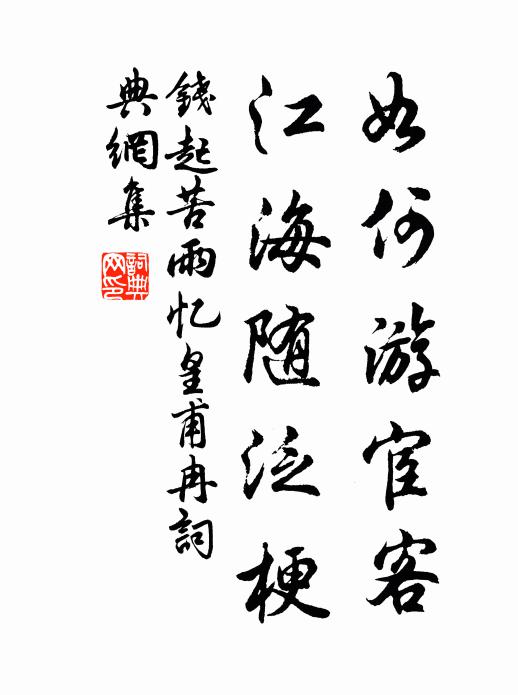 如何游宦客
江海随泛梗
錢起苦雨忆皇甫冉詞
典網集
詞典网印